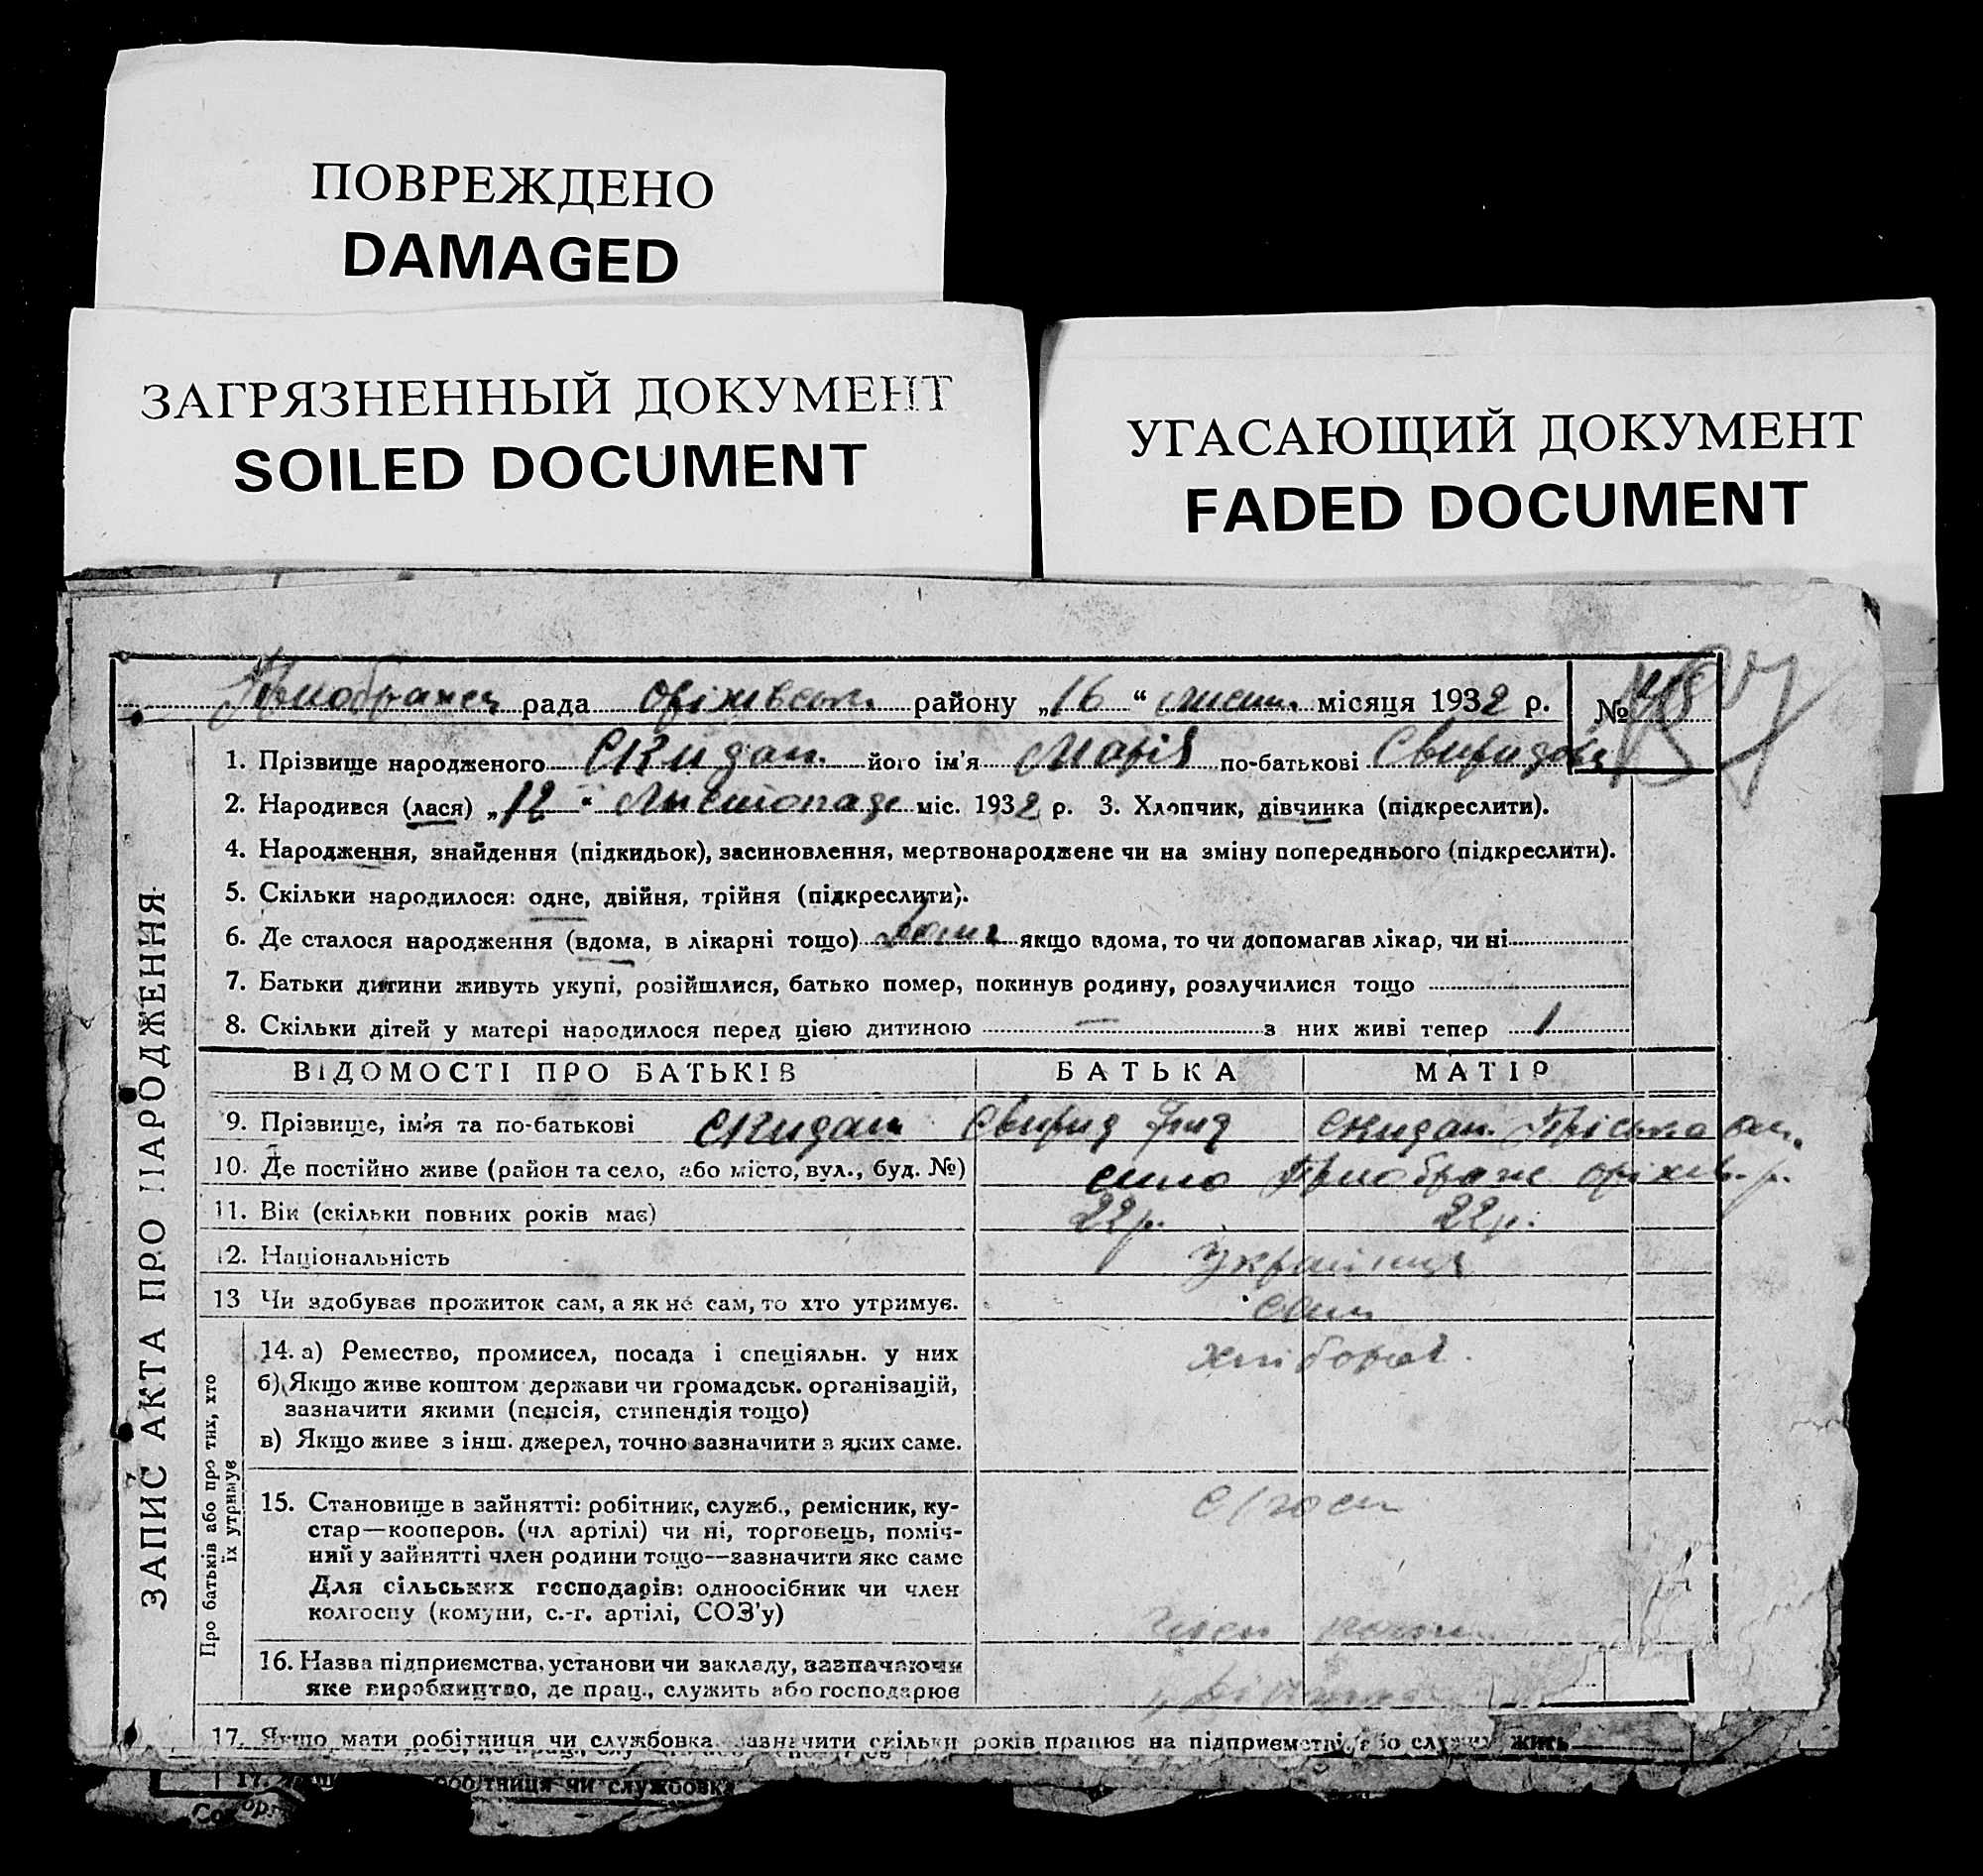 ПОВРЕЖДЕНО
DAMAGED
ЗАГРЯЗНЕННЫЙ ДОКУМЕНТ
SOILED DOCUMENT
УГАСАЮЩИЙ ДОКУМЕНТ
FADED DOCUMENT
рада оріхівськ. району „16“ лист. місяця 1932 р. №
1. Прізвище народженого Скидан його ім'я Марія по-батькові Свиридовна
2. Народився (лася) „12“ Листопада міс. 1932 р. 3. Хлопчик, дівчинка (підкреслити).
4. Народження, знайдення (підкидьок), засиновлення, мертвонароджене чи на зміну попереднього (підкреслити).
5. Скільки народилося: одне, двійня, трійня (підкреслити).
6. Де сталося народження (вдома, в лікарні тощо) Дома якщо вдома, то чи допомагав лікар, чи ні
7. Батьки дитини живуть укупі, розійшлися, батько помер, покинув родину, розлучилися тощо
8. Скільки дітей у матері народилося перед цією дитиною — з них живі тепер 1
ЗАПИС АКТА ПРО НАРОДЖЕННЯ
ВІДОМОСТІ ПРО БАТЬКІВ БАТЬКА МАТІР
9. Прізвище, ім'я та по-батькові Скидан Свирид Скидан Пріська
10. Де постійно живе (район та село, або місто, вул., буд. №) село оріхів. р.
11. Вік (скільки повних років має) 22 р. 22 р.
12. Національність українці
13 Чи здобуває прожиток сам, а як не сам, то хто утримує. сам
Про батьків або про тих, хто
їх утримує
14. а) Ремество, промисел, посада і спеціяльн. у них хлібороб
б) Якщо живе коштом держави чи громадськ. організацій,
зазначити якими (пенсія, стипендія тощо)
в) Якщо живе з інш. джерел, точно зазначити з яких саме.
15. Становище в зайнятті: робітник, служб., ремісник, ку-
стар—кооперов. (чл артілі) чи ні, торговець, поміч-
ний у зайнятті член родини тощо—зазначити яке саме
Для сільських господарів: одноосібник чи член
колгоспу (комуни, с.-г. артілі, СОЗ'у) член
16. Назва підприємства, установи чи закладу, зазначаючи
яке виробництво, де прац., служить або господарює
17. Якщо мати робітниця чи службовка зазначити скільки років працює на підприємстві, або служить
17. робітниця чи службовка